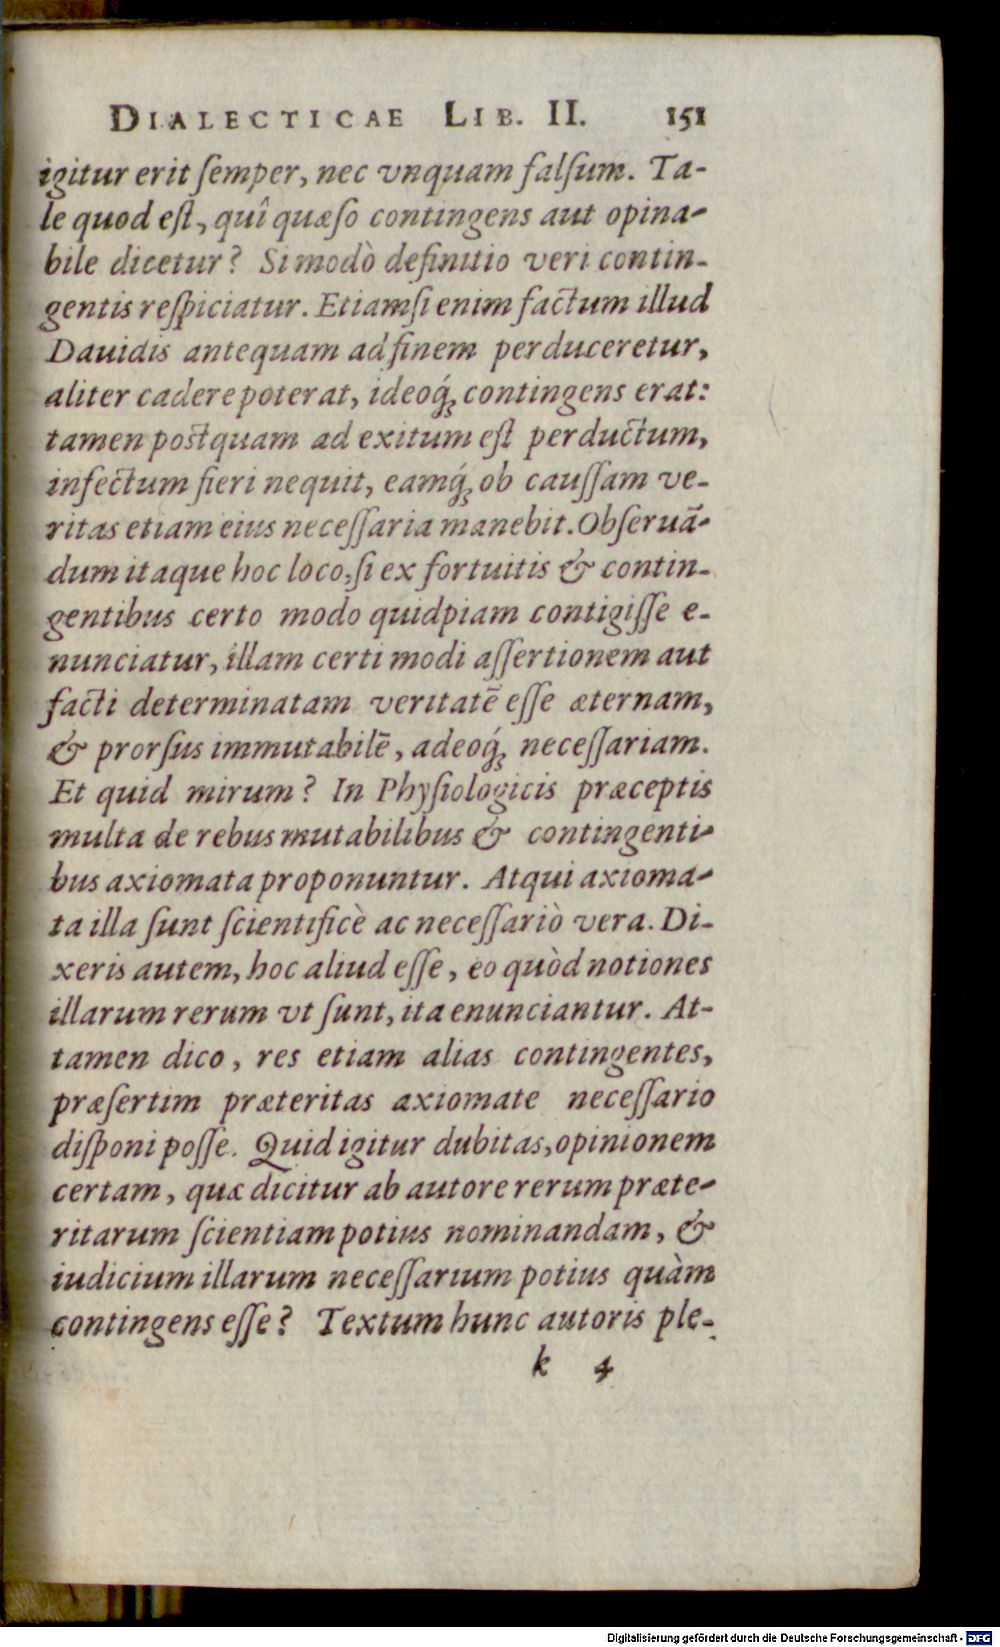 DIALECTICAE LIB. II. 151
igitur erit ſemper, nec vnquam falſum. Ta-
le quod eſt, quî quæſo contingens aut opina-
bile dicetur? Si modò definitio veri contin-
gentis reſpiciatur. Etiamſi enim factum illud
Dauidis antequam ad finem perduceretur,
aliter cadere poterat, ideoq́; contingens erat:
tamen postquam ad exitum eſt perductum,
infectum fieri nequit, eamq́; ob cauſſam ve-
ritas etiam eius neceſſaria manebit. Obſeruā-
dum itaque hoc loco, ſi ex fortuitis & contin-
gentibus certo modo quidpiam contigiſſe e-
nunciatur, illam certi modi aſſertionem aut
facti determinatam veritatē eſſe æternam,
& prorſus immutabilē, adeoq́; neceſſariam.
Et quid mirum? In Phyſiologicis præceptis
multa de rebus mutabilibus & contingenti-
bus axiomata proponuntur. Atqui axioma-
ta illa ſunt ſcientificè ac neceſſariò vera. Di-
xeris autem, hoc aliud eſſe, eo quòd notiones
illarum rerum vt ſunt, ita enunciantur. At-
tamen dico, res etiam alias contingentes,
præſertim præteritas axiomate neceſſario
diſponi poſſe. Quid igitur dubitas, opinionem
certam, quæ dicitur ab autore rerum præte-
ritarum ſcientiam potius nominandam, &
iudicium illarum neceſſarium potius quàm
contingens eſſe? Textum hunc autoris ple-
k 4
Digitalisierung gefördert durch die Deutsche Forschungsgemeinschaft - DFG